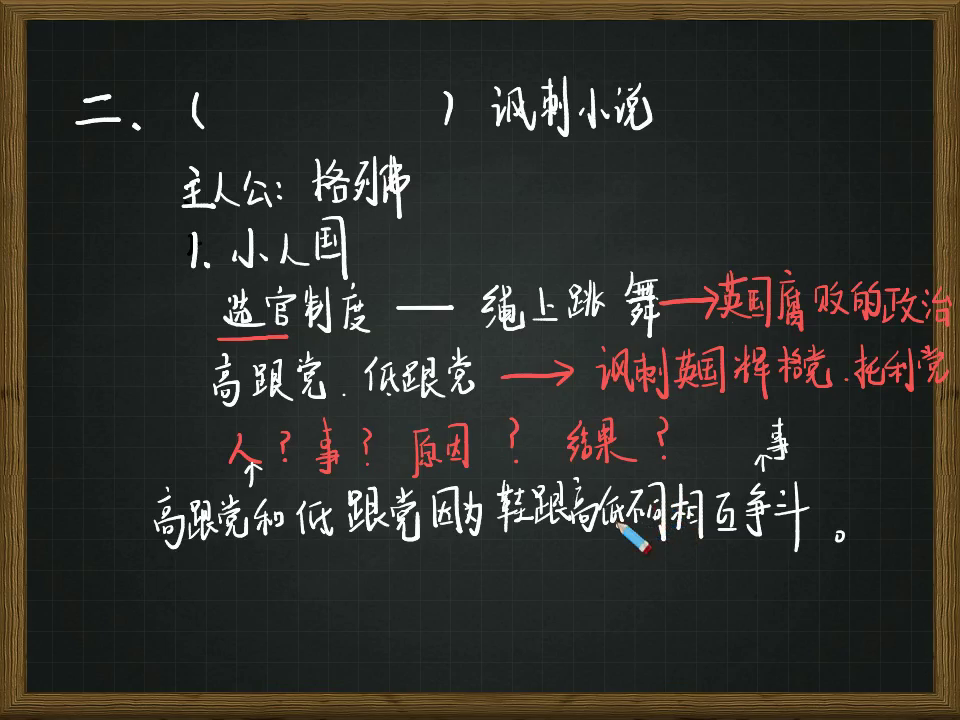 二、(          ) 讽刺小说
主人公: 格列弗
1. 小人国
选官制度 — 绳上跳舞→英国腐败的政治
高跟党.低跟党 → 讽刺英国辉格党.托利党
人?事?原因?结果? 事
高跟党和低跟党因为鞋跟高低不同相互争斗。